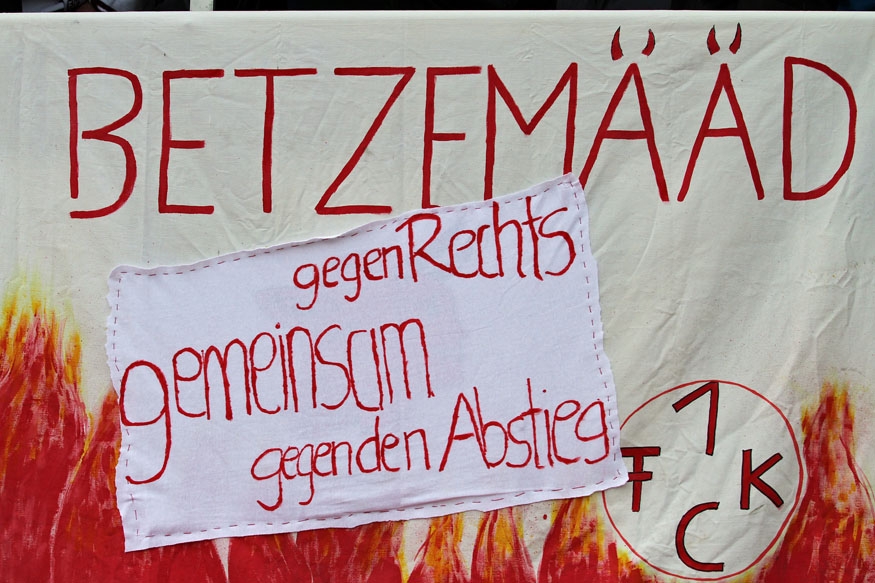 BETZEMÄÄD
gegen Rechts
gemeinsam
gegen den Abstieg
1
F K
C